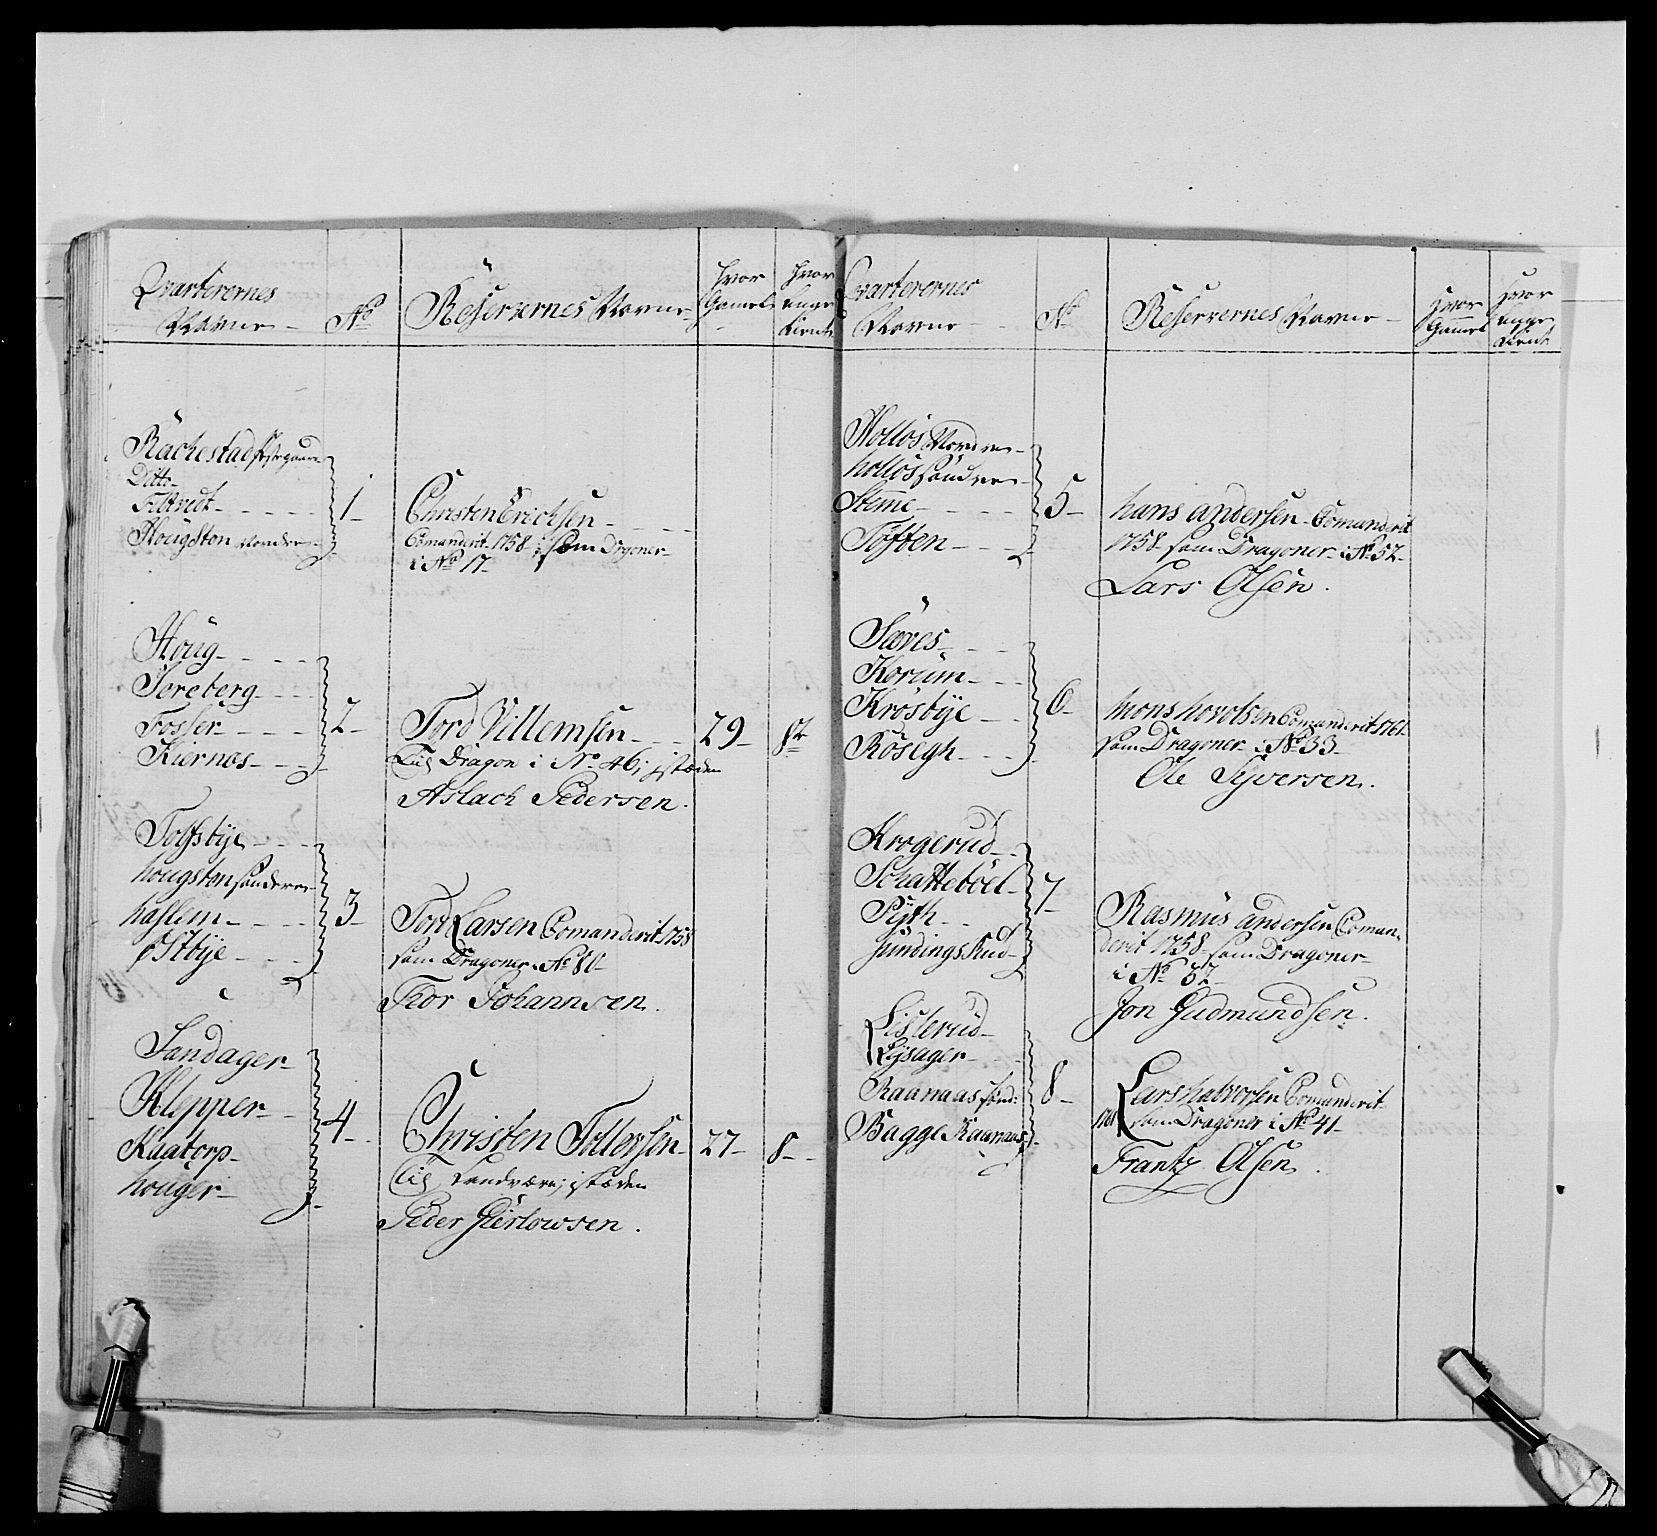 Qvarterernes
Navne - No
Reservernes Navne
Hvor
Gamel
Hvor
lenge
tient
Rachestad
Ditto
Filtvedt
Hougston Nordre
1
Christen Erichsen
Comanderit 1758 som Dragoner
i No 17
Houg
Foss
Kiernes
2
Tord Villemsen - 29 - 8½
Til Dragon i No 46, i stæden
Aslach Pedersen.
Tofsbye
hougston søndre
haslem
østbye
3
Tord Larsen Comanderit 1758
som Dragoner i No 80
Thor Johannsen.
Sandager
Klepper
Kaatorp
houger
4
Christen Tollevsen - 27 - 8
til Landværn; i stæden
Peder Giertowsen.
Qvarterernes
Navne - No
Reservernes Navne
Hvor
Gamel
Hvor
lenge
tient
Holløs Nordre
holløs søndre
Stemme
Toften
5
hans andersen Comanderit
1758 som Dragoner i No 52
Lars Olsen.
Korum
Krosbye
Rosegh
6
mons hovelsen Comanderit 1761
som Dragoner i No 33
Ole Syversen.
Krogerud
Schattebøel
Pyth
hundingsRud
7
Rasmus andersen Coman-
derit 1758 som Dragoner
i No 57
Jon Gudmundsen.
Listerud
Lysager
Raanaas sønd:
Bagge Raanaas
8
Lars halvorsen Comanderit
1761 som Dragoner i No 41
Frantz Olsen.